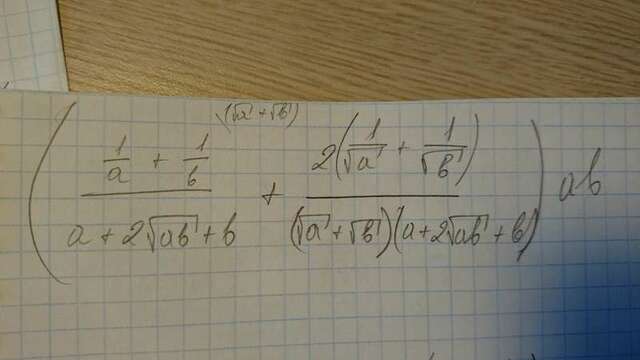 (√a + √b)
( (1/a + 1/b) / (a + 2√ab + b) + 2(1/√a + 1/√b) / ((√a + √b)(a + 2√ab + b)) ) ab